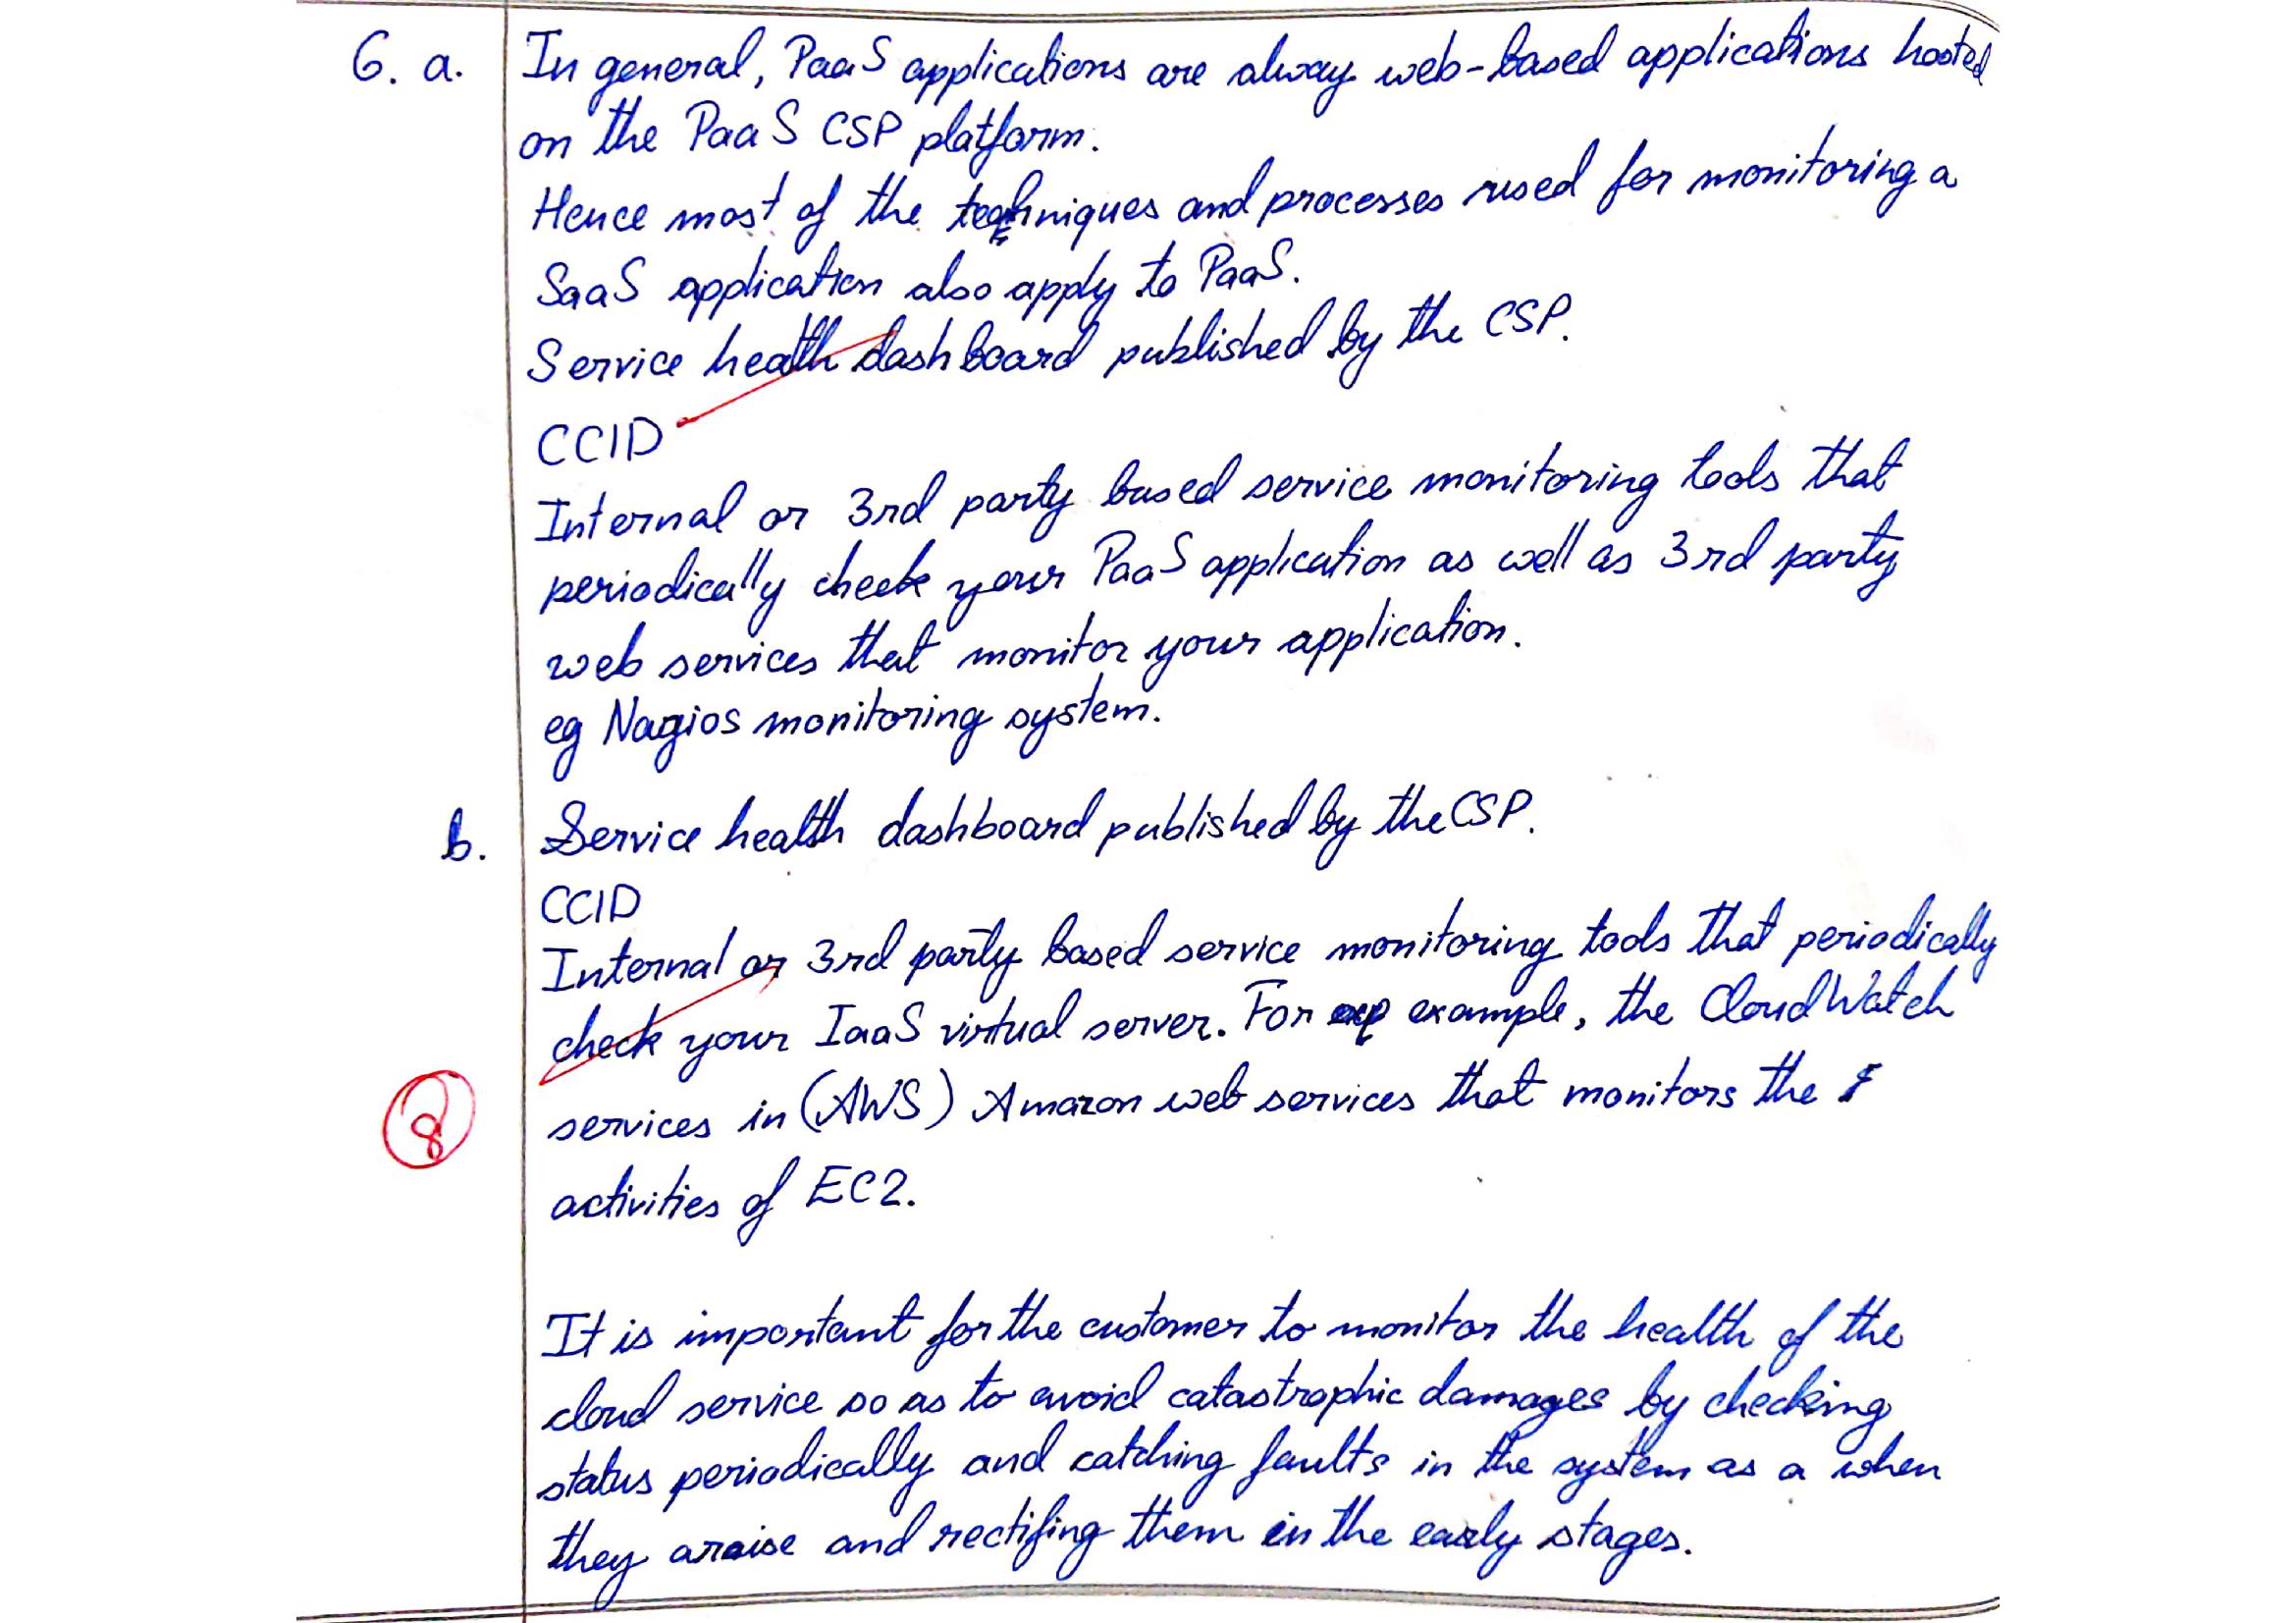 6. a. In general, PaaS applications are alway web-based applications hosted
on the PaaS CSP platform.
Hence most of the techniques and processes used for monitoring a
SaaS application also apply to PaaS.
Service health dashboard published by the CSP.
CCID
Internal or 3rd party based service monitoring tools that
periodically check your PaaS application as well as 3rd party
web services that monitor your application.
eg Nagios monitoring system.
b. Service health dashboard published by the CSP.
CCID
Internal or 3rd party based service monitoring tools that periodically
check your IaaS virtual server. For example, the CloudWatch
8
services in (AWS) Amazon web services that monitors the
activities of EC2.
It is important for the customer to monitor the health of the
cloud service so as to avoid catastrophic damages by checking
status periodically and catching faults in the system as a when
they araise and rectifing them in the early stages.